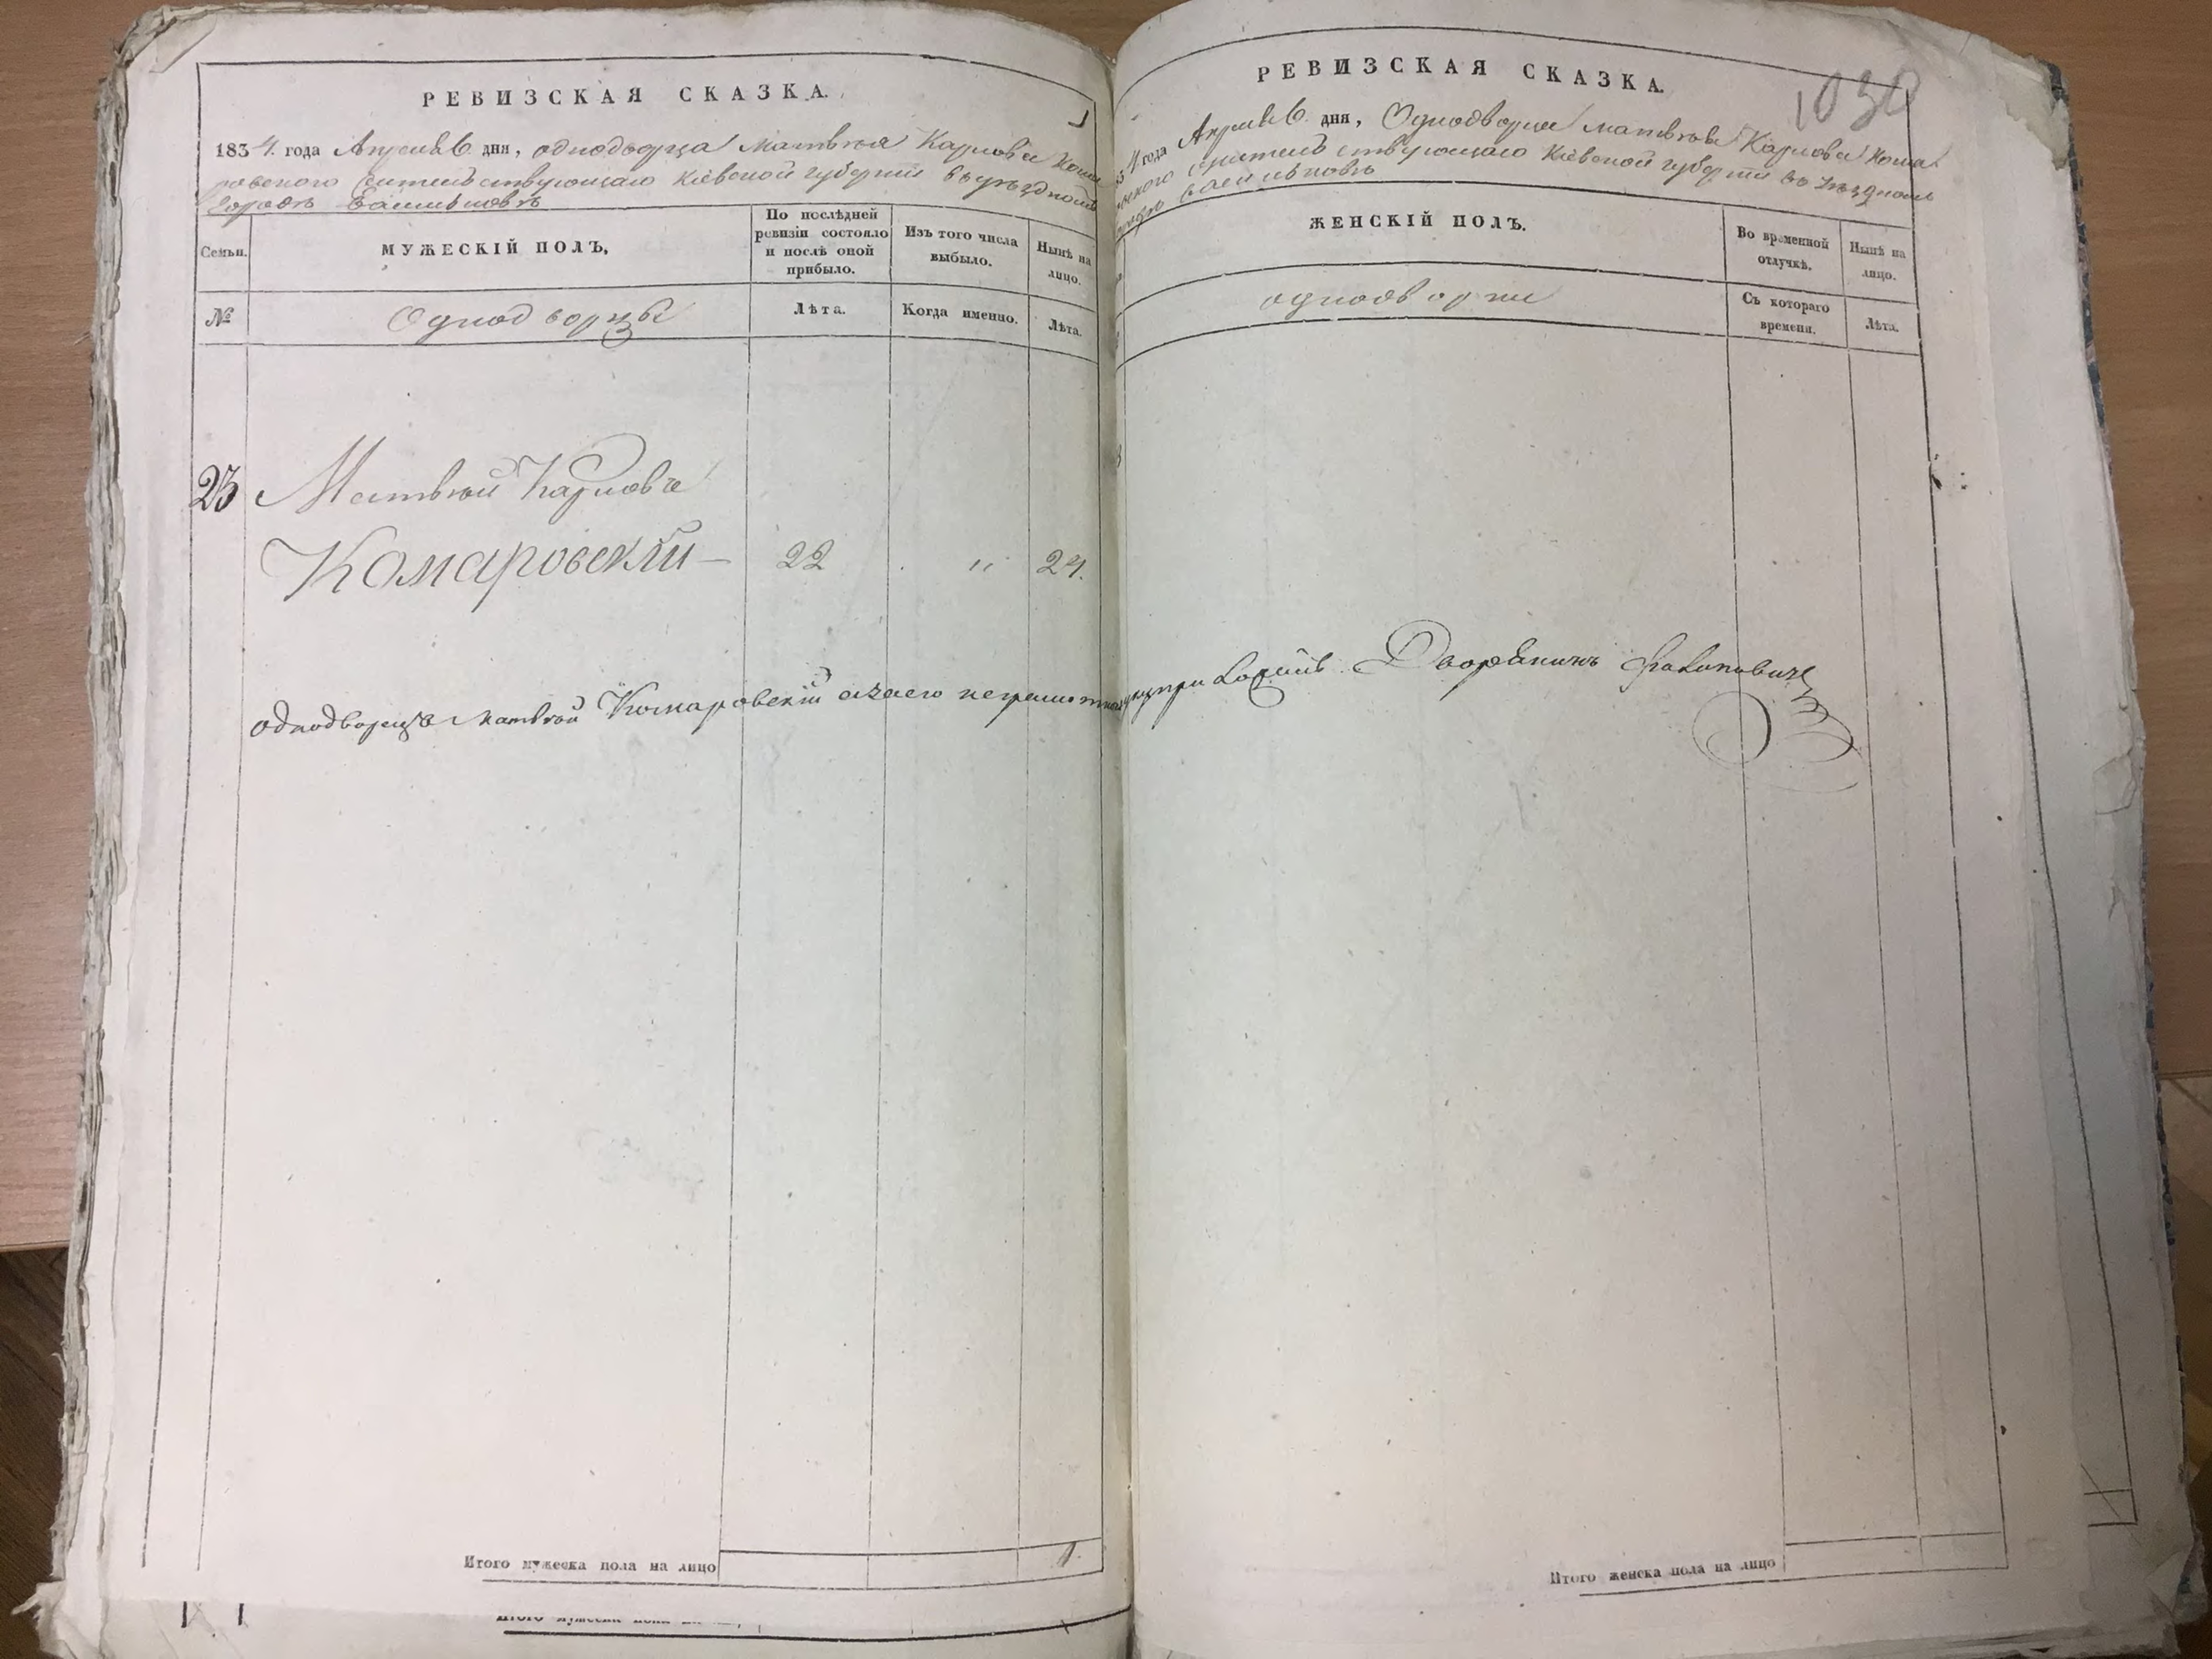 РЕВИЗСКАЯ СКАЗКА.
1834. года Апреля 6 дня, однодворца Матвѣя Карлова Кома
ровского жительствующаго Кіевской губерніи въ уѣздномъ
Городѣ Васильковѣ
Семьи.
МУЖЕСКІЙ ПОЛЪ,
По послѣдней ревизіи состояло и послѣ оной прибыло.
Изъ того числа выбыло.
Нынѣ на лицо.
№
Однодворцы
Лѣта.
Когда именно.
Лѣта.
23 Матвѣй Карловъ
Комаровскій — 22 . " 24.
однодворецъ Матвѣй Комаровскій азаего неграмотнаго
Итого мужеска пола на лицо 1.
1030
РЕВИЗСКАЯ СКАЗКА.
4 года Апреля 6. дня, Однодворца Матвѣя Карлова Кома
ского жительствующаго Кіевской губерніи въ уѣздномъ
Васильковѣ
ЖЕНСКІЙ ПОЛЪ.
Во временной отлучкѣ.
Нынѣ на лицо.
однодворки
Съ котораго времени.
Лѣта.
Дворянинъ
Итого женска пола на лицо